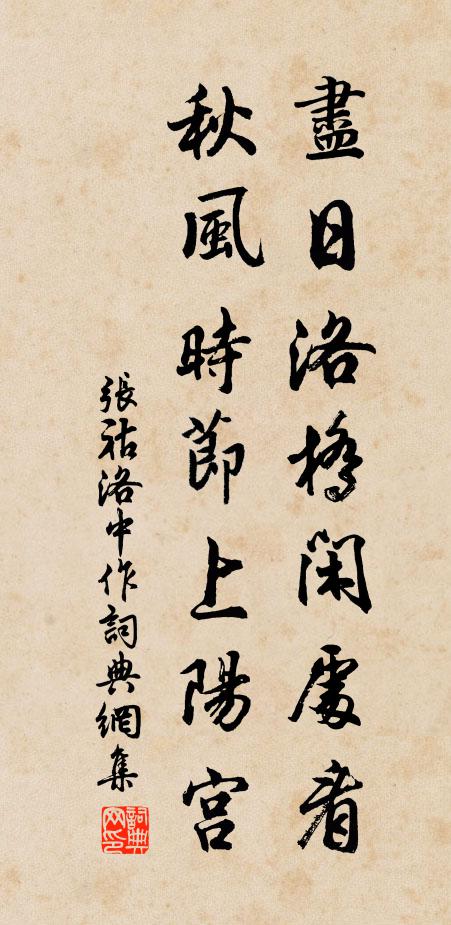 盡日洛橋閑處看
秋風時節上陽宮
張祜洛中作詞典網集
詞典網印